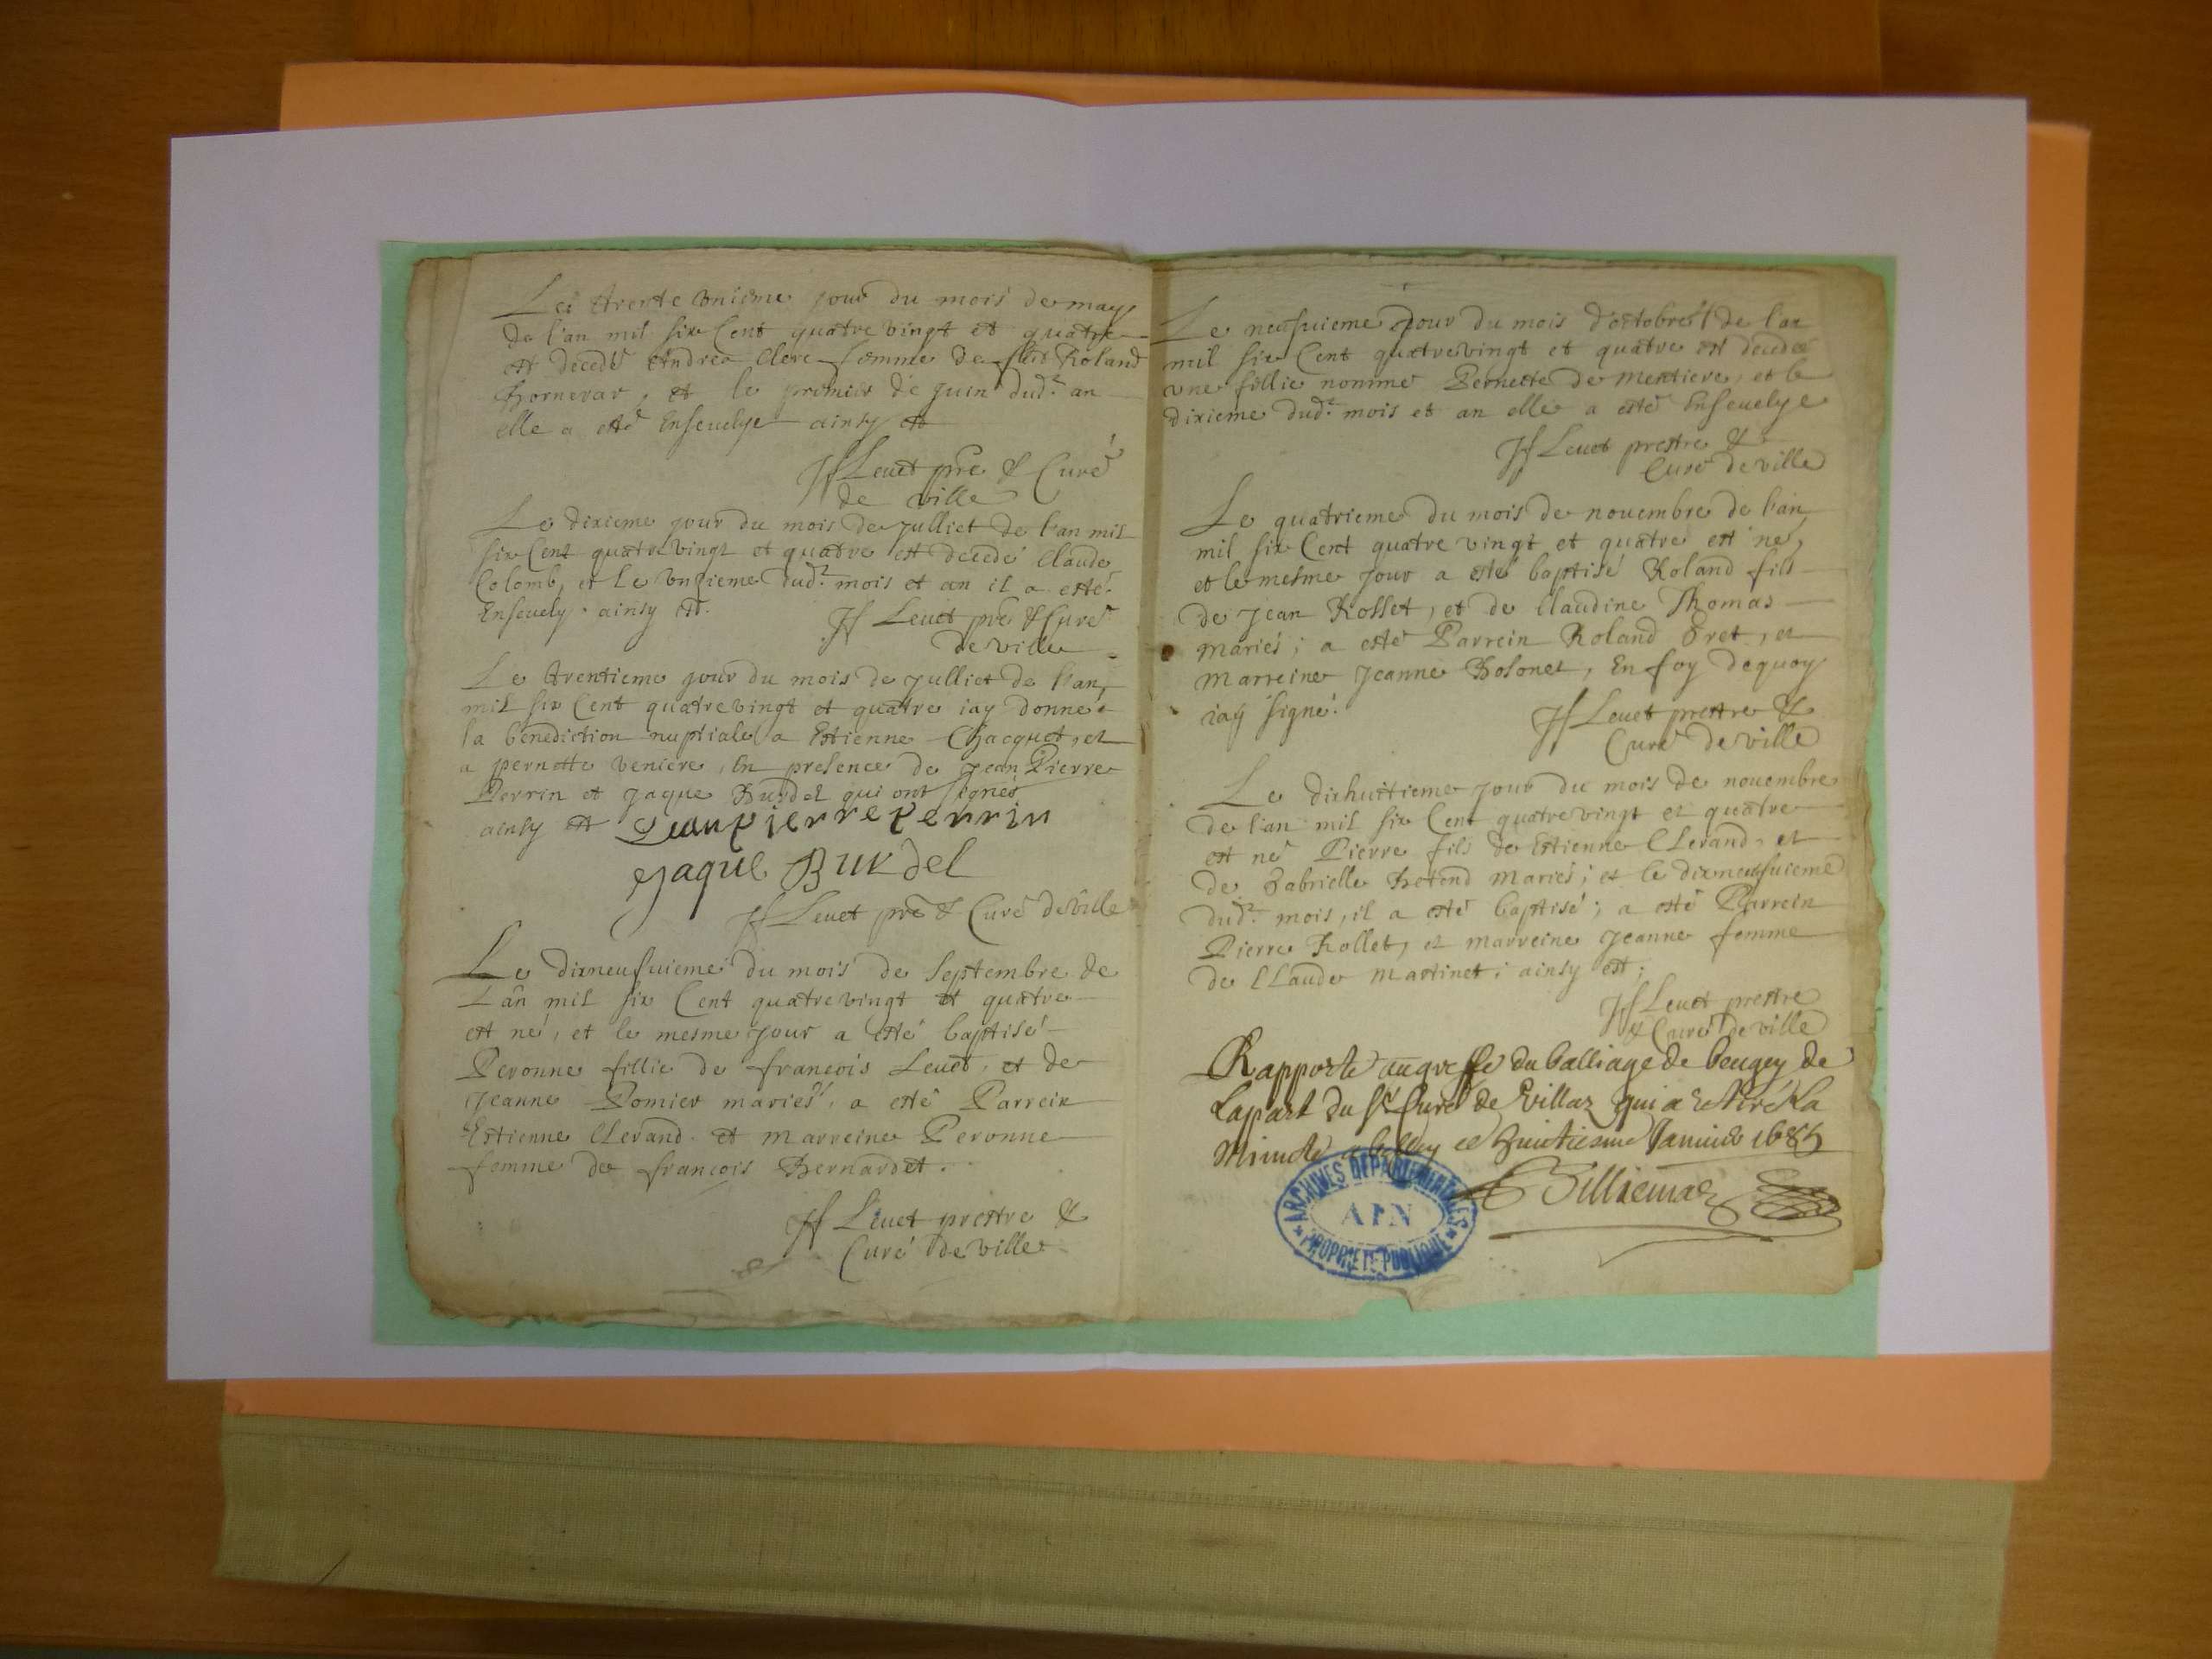 Le trente unieme jour du mois de may
de l'an mil six Cent quatre vingt et quatre
est decedé Andrea Clerc femme de feu Roland
et le premier de juin dud.t an
elle a esté Enseuelye ainsy est
Leuet pre & Curé
de ville
Le dixieme jour du mois de Julliet de l'an mil
six Cent quatre vingt et quatre est decedé Claude
Colomb, et le unzieme dud.t mois et an il a esté
Enseuely. ainsy est.
Leuet pre & Curé
de ville
Le trentieme jour du mois de Julliet de l'an
mil six Cent quatre vingt et quatre iay donné
la benediction nuptiale a Estienne Chacquet, et
a pernette veniere, En presence de Jean Pierre
Perrin et Jaque Burdel qui ont signés
ainsy est Jean pierre perrin
Jaque Burdel
Leuet pre & Curé de ville
Le dixneufuieme du mois de Septembre de
L'an mil six Cent quatre vingt et quatre
est né, et le mesme jour a esté baptisé
Peronne fillie de francois Leuet, et de
Jeanne Pomier mariés, a esté Parrein
Estienne CLerand et Marreine Peronne
femme de francois Bernardet.
Leuet prestre &
Curé de ville
Le neufuieme jour du mois d'octobre de l'an
mil six Cent quatre vingt et quatre est decedée
une fillie nommé Pernette de Mentiere, et le
dixieme dud.t mois et an elle a esté Enseuelye
Leuet prestre &
Curé de ville
Le quatrieme du mois de nouembre de l'an
mil six Cent quatre vingt et quatre est né,
et le mesme jour a esté baptisé Roland fils
de Jean Rosset, et de Claudine Thomas
mariés; a esté Parrein Roland et
Marreine Jeanne Bosonet, En foy dequoy
iay signé.
Leuet prestre &
Curé de ville
Le dixhuitieme jour du mois de nouembre
de l'an mil six Cent quatre vingt et quatre
est né Pierre fils de Estienne CLerand, et
de Gabrielle mariés; et le dixneufuieme
dud.t mois, il a esté baptisé; a esté Parrein
Pierre Rollet, et marreine Jeanne femme
de CLaude Martinet; ainsy est;
Leuet prestre
& Curé de ville
Rapporté au greffe du balliage de beugey de
la part du Sr Curé de Villaz qui a retiré La
Minute a belley ce huictiesme Januier 1685
ARCHIVES DEPARTEMENTALES
AIN
PROPRIETE PUBLIQUE